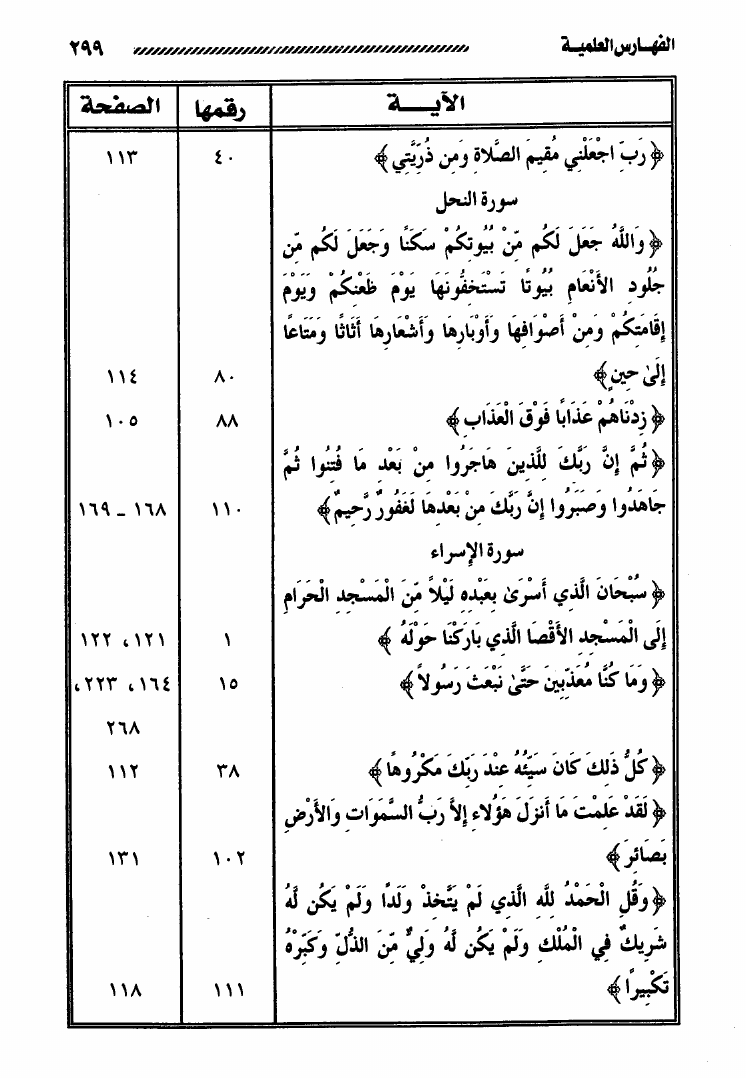 الفهـارس العلميـة ٢٩٩
الآيـــة رقمها الصفحة
﴿رَبِّ اجْعَلْنِي مُقِيمَ الصَّلَاةِ وَمِن ذُرِّيَّتِي﴾ ٤٠ ١١٣
سورة النحل
﴿وَاللَّهُ جَعَلَ لَكُم مِّنْ بُيُوتِكُمْ سَكَنًا وَجَعَلَ لَكُم مِّن
جُلُودِ الأَنْعَامِ بُيُوتًا تَسْتَخِفُّونَهَا يَوْمَ ظَعْنِكُمْ وَيَوْمَ
إِقَامَتِكُمْ وَمِنْ أَصْوَافِهَا وَأَوْبَارِهَا وَأَشْعَارِهَا أَثَاثًا وَمَتَاعًا
إِلَىٰ حِينٍ﴾ ٨٠ ١١٤
﴿زِدْنَاهُمْ عَذَابًا فَوْقَ الْعَذَابِ﴾ ٨٨ ١٠٥
﴿ثُمَّ إِنَّ رَبَّكَ لِلَّذِينَ هَاجَرُوا مِنْ بَعْدِ مَا فُتِنُوا ثُمَّ
جَاهَدُوا وَصَبَرُوا إِنَّ رَبَّكَ مِنْ بَعْدِهَا لَغَفُورٌ رَّحِيمٌ﴾ ١١٠ ١٦٨ ـ ١٦٩
سورة الإسراء
﴿سُبْحَانَ الَّذِي أَسْرَىٰ بِعَبْدِهِ لَيْلاً مِّنَ الْمَسْجِدِ الْحَرَامِ
إِلَى الْمَسْجِدِ الأَقْصَا الَّذِي بَارَكْنَا حَوْلَهُ ﴾ ١ ١٢١، ١٢٢
﴿وَمَا كُنَّا مُعَذِّبِينَ حَتَّىٰ نَبْعَثَ رَسُولاً﴾ ١٥ ١٦٤، ٢٢٣،
٢٦٨
﴿كُلُّ ذَلِكَ كَانَ سَيِّئُهُ عِنْدَ رَبِّكَ مَكْرُوهًا﴾ ٣٨ ١١٢
﴿لَقَدْ عَلِمْتَ مَا أَنزَلَ هَؤُلاءِ إِلاَّ رَبُّ السَّمَوَاتِ وَالأَرْضِ
بَصَائِرَ﴾ ١٠٢ ١٣١
﴿وَقُلِ الْحَمْدُ لِلَّهِ الَّذِي لَمْ يَتَّخِذْ وَلَدًا وَلَمْ يَكُن لَّهُ
شَرِيكٌ فِي الْمُلْكِ وَلَمْ يَكُن لَّهُ وَلِيٌّ مِّنَ الذُّلِّ وَكَبِّرْهُ
تَكْبِيرًا﴾ ١١١ ١١٨